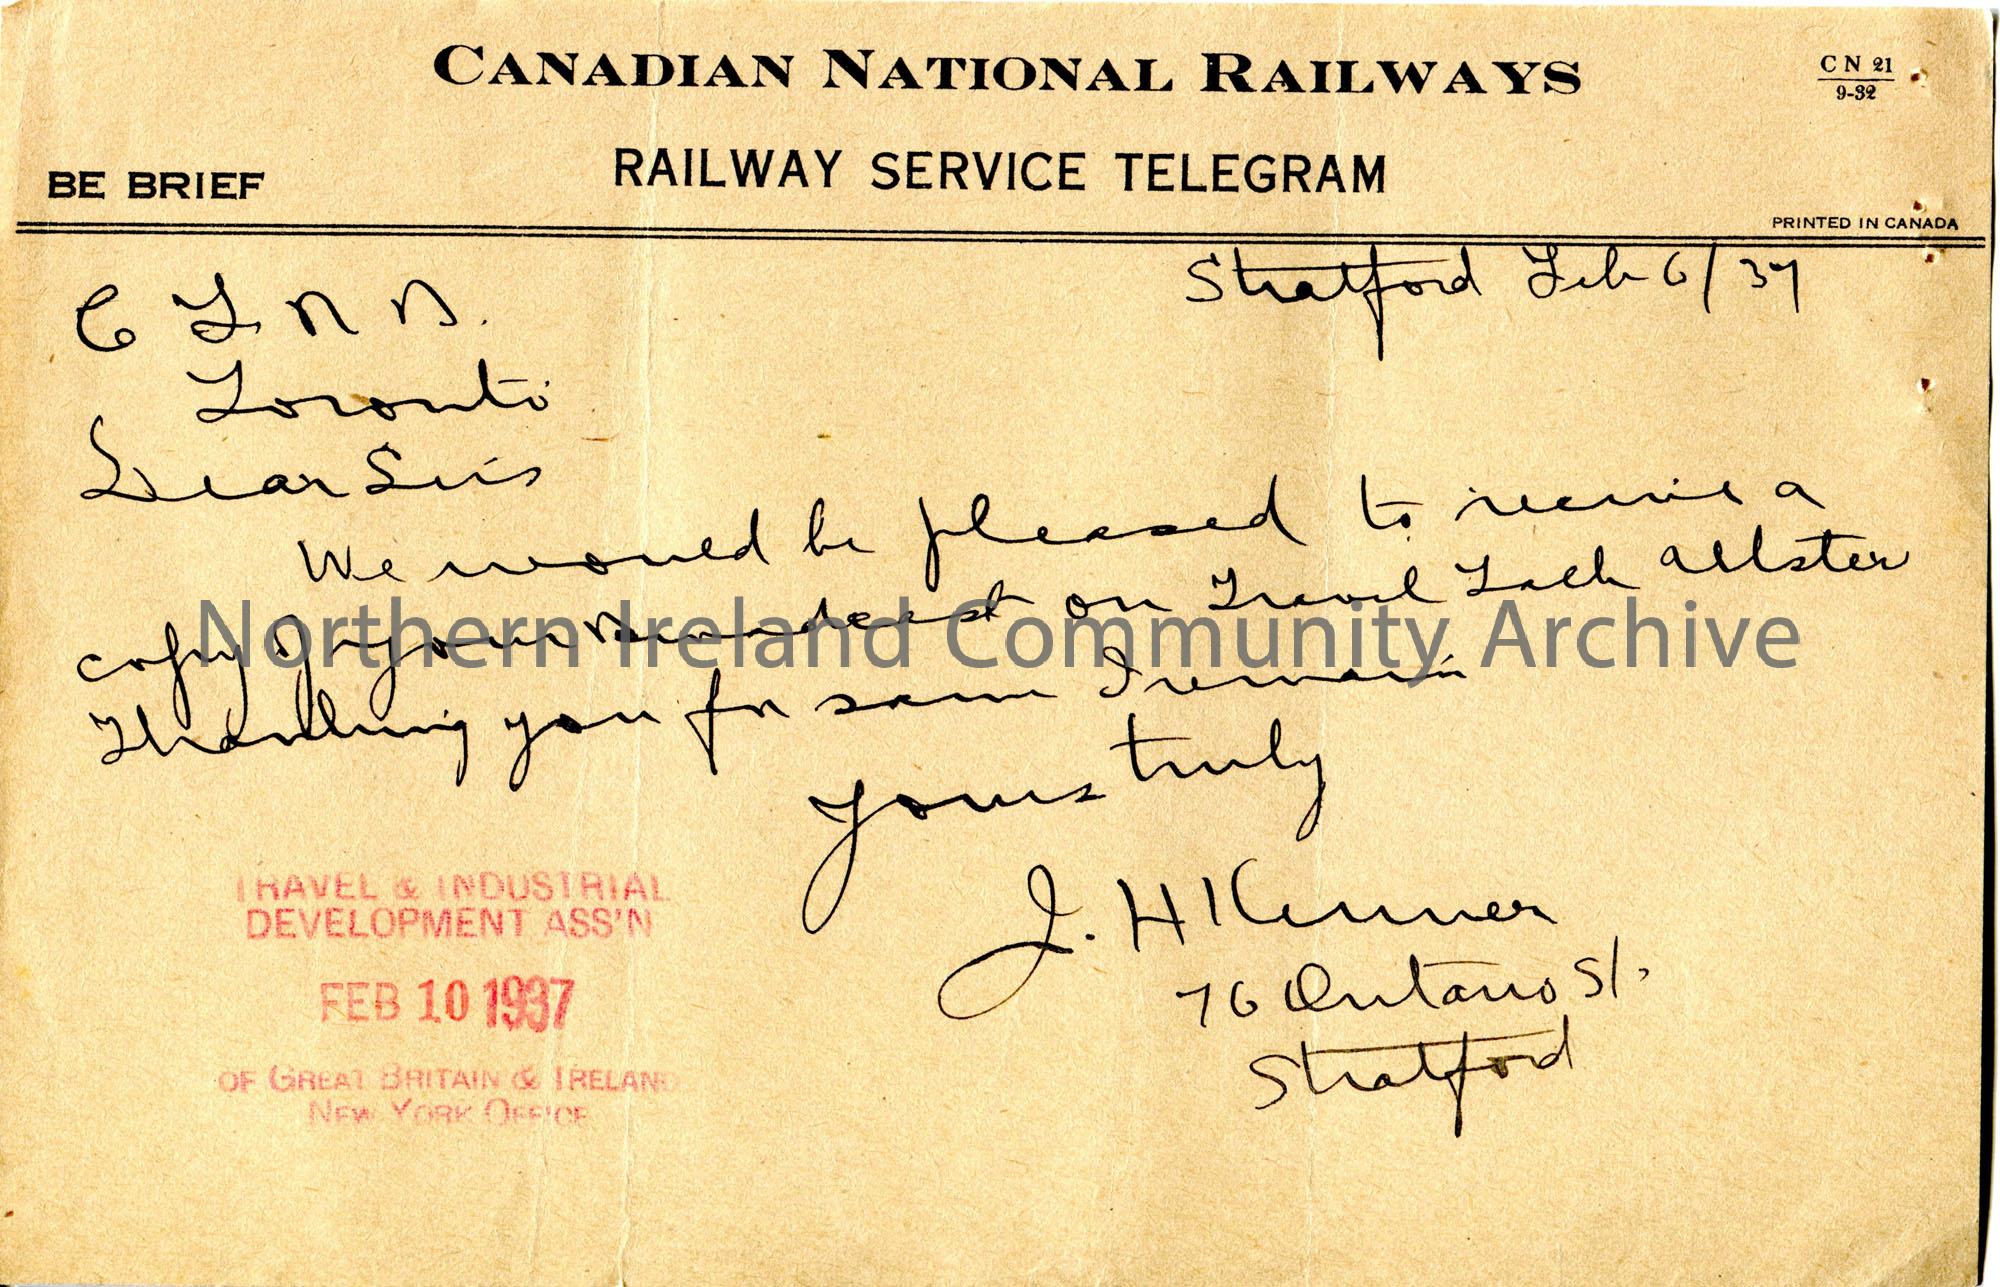 CANADIAN NATIONAL RAILWAYS
CN 21
9-32
BE BRIEF
RAILWAY SERVICE TELEGRAM
PRINTED IN CANADA
Stratford Feb 6/37
Toronto
Dear Sirs
We would be pleased to receive a
copy of your on Travel Talk Ulster
Thanking you for same I remain
Yours truly
J. H Kenner
76 Ontario St.
Stratford
TRAVEL & INDUSTRIAL
DEVELOPMENT ASS'N
FEB 10 1937
OF GREAT BRITAIN & IRELAND
NEW YORK OFFICE
Northern Ireland Community Archive